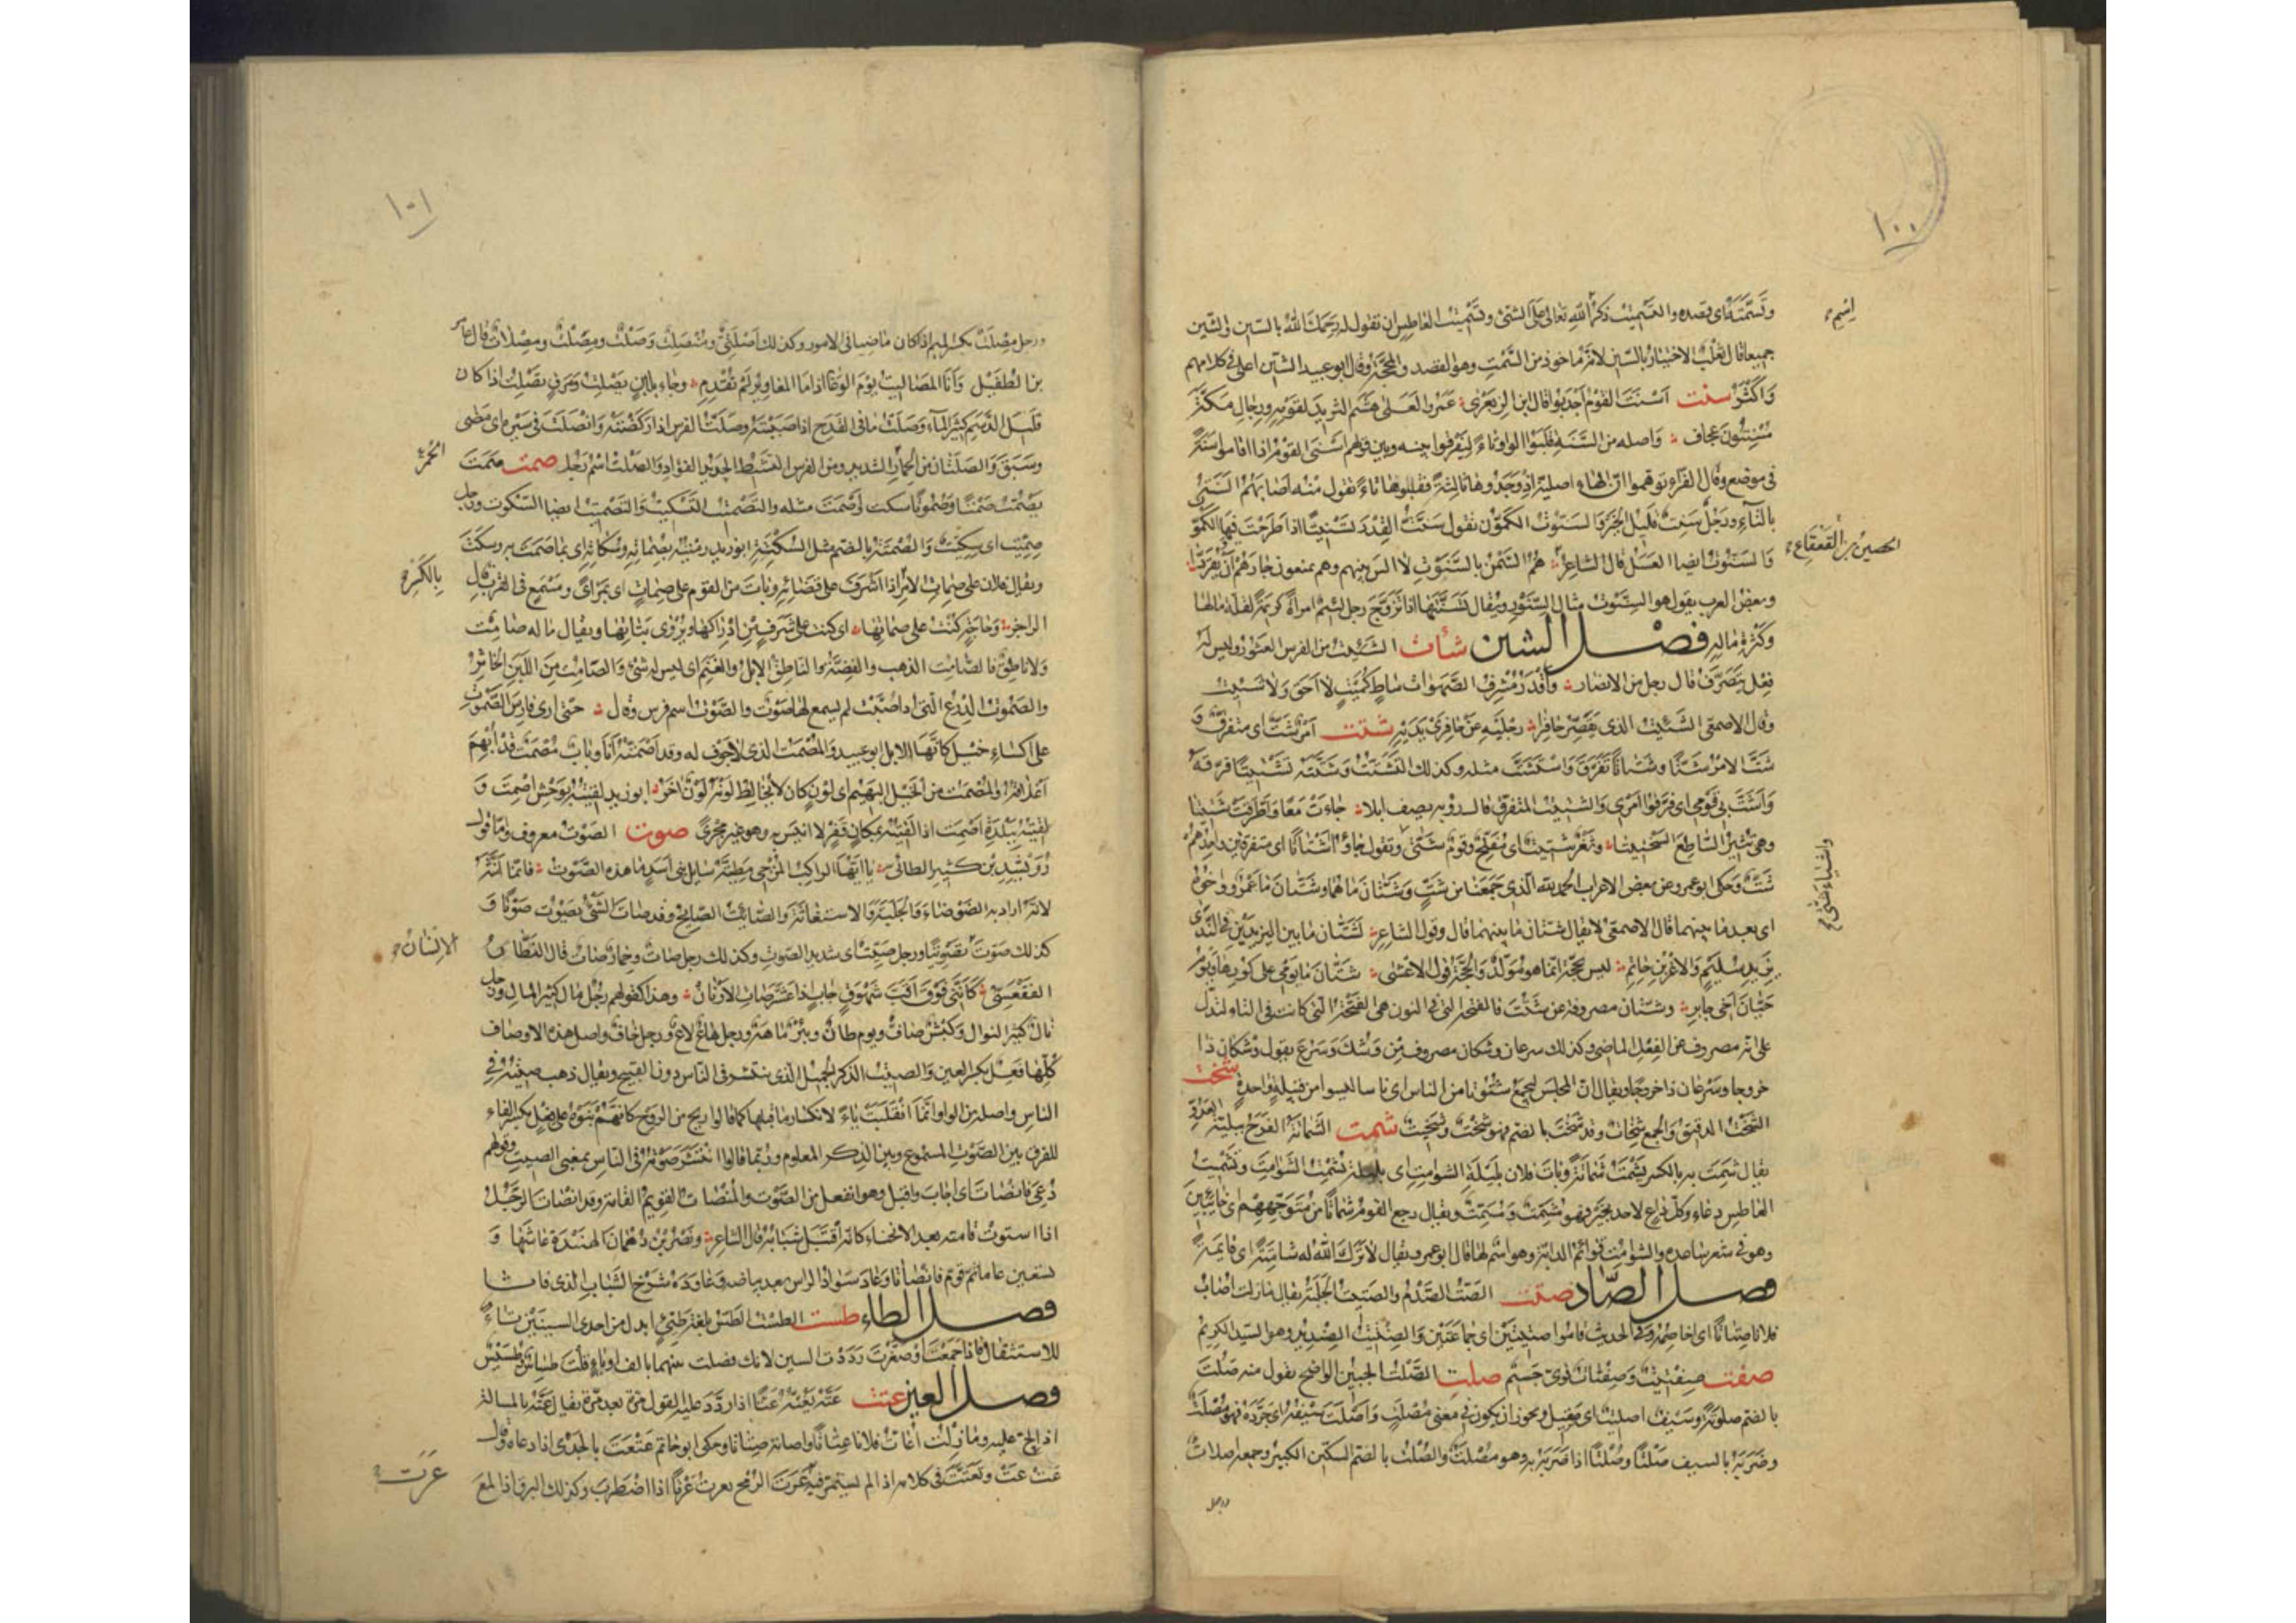 ١٠٠
وتسمته اي قصده والتسميت ذكر الله تعالى على الشئ وتسميت العاطس ان تقول له يرحمك الله بالسين والشين
جميعا قال ثعلب الاختيار بالسين لانه ماخوذ من السمت وهو القصد والمحجة وقال ابو عبيد الشين اعلى في كلامهم
واكثر سنت اسنت القوم اجدبوا قال ابن الزبعرى عمرو العلى هشم الثريد لقومه ورجال مكة
مسنتون عجاف واصله من السنة قلبوا الواو تاء ليفرقوا بينه وبين قولهم اسنى القوم اذا اقاموا سنة
في موضع وقال الفراء توهموا ان الهاء اصلية اذ وجدوها ثالثة فقلبوها تاء تقول منه اصابهم السنة
بالتاء ورجل سنت قليل الخير والسنوت الكمون تقول سنت القدر تسنيتا اذا طرحت فيها الكمون
والسنوت ايضا العسل قال الشاعر هم السمن بالسنوت لا الس بينهم وهم يمنعون جارهم ان يقردا
وبعض العرب يقول هو السنوت مثال السنور ويقال تسنتها اذا تزوج رجل لئيم امراة كريمة لقلة مالها
وكثرة ماله فصل الشين شات الشئيت من الفرس العثور وليس له
فعل يتصرف قال رجل من الانصار واقدر مشرف الصهوات ساط كميت لا احق ولا شئيت
وقال الاصمعي الشئيت الذي يقصر حافرا رجليه عن حافري يديه شتت امر شت اي متفرق و
شت الامر شتا وشتاتا تفرق واستشت مثله وكذلك التشتت وشتته تشتيتا فرقه
واشت بي قومي اي فرقوا امري والشتيت المتفرق قال رؤبه يصف ابلا جاءت معا واطرقت شتيتا
وهي تثير الساطع السختيتا وثغر شتيت اي مفلج وقوم شتى وتقول جاؤا اشتاتا اي متفرقين واحدهم
شت وحكى ابو عمرو عن بعض الاعراب الحمد لله الذي جمعنا من شت وشتان ما هما وشتان ما عمرو واخوه
اي بعد ما بينهما قال الاصمعي لا يقال شتان ما بينهما قال وقول الشاعر لشتان ما بين اليزيدين في الندى
يزيد سليم والاغر بن حاتم ليس بحجة انما هو مولد والحجة قول الاعشى شتان ما يومي على كورها ويوم
حيان اخي جابر وشتان مصروفة عن شتت فالفتحة التي في النون هي الفتحة التي كانت في التاء لتدل
على انه مصروف عن الفعل الماضي وكذلك سرعان ووشكان مصروف من وشك وسرع يقول وشكان ذا
خروجا وسرعان ذا خروجا ويقال ان المجلس ليجمع شتوتا من الناس اي ناسا ليسوا من قبيلة واحدة شخت
الشخت الدقيق والجمع شخات وقد شخت بالضم فهو شخت وشخيت شمت الشماتة الفرح ببلية العدو
يقال شمت به بالكسر يشمت شماتة وبات فلان بليلة الشوامت اي بليلة تشمت الشوامت وتشميت
العاطس دعاء وكل داع لاحد بخير فهو مشمت ومسمت ويقال رجع القوم شماتا من متوجههم اي خائبين
وهو في شعر ساعدة والشوامت قوائم الدابة وهو اسم لها قال ابو عمرو يقال لا ترك الله له شامتة اي قايمة
فصل الصاد صتت الصت الصدم والصتيت الجلبة يقال ما زلت اصات
فلانا صتاتا اي اخاصمه وفي الحديث قاموا صتيتين اي جماعتين والصنتيت الصنديد وهو السيد الكريم
صفت صفتيت وصفتات قوي جسيم صلت الصلت الجبين الواضح يقول منه صلت
بالضم صلوتة وسيف اصليت اي صقيل ويجوز ان يكون في معنى مصلت واصلت سيفه اي جرده فهو مصلت
وضربه بالسيف صلتا وصلتا اذا ضربه به وهو مصلت والصلت بالضم السكين الكبير وجمعه اصلات
ورجل
اسم
الحصين بن القعقاع
واشياء شتى
١٠١
ورجل مصلت بكسر الميم اذا كان ماضيا في الامور وكذلك اصلتي ومنصلت وصلت ومصلت ومصلات قال عامر
بن الطفيل وانا المصاليت يوم الوغا اذا ما المغاوير لم تقدم وجاء بلبن يصلت ومرق يصلت اذا كان
قليل الدسم كثير الماء وصلت ما في القدح اذا صببته وصلت الفرس اذا ركضته وانصلت في سيره اي مضى
وسبق والصلتان من الحمر الشديد ومن الفرس النشيط الحديد الفؤاد والصلت اسم رجل صمت صمت
يصمت صمتا وصموتا سكت واصمت مثله والتصميت التسكيت والتصميت ايضا السكون ورجل
صميت اي سكيت والصمتة بالضم مثل السكتة ابو زيد رميته بصماته وسكاته اي بما صمت به وسكت
ويقال فلان على صمات الامر اذا اشرف على قضائه وبات من القوم على صمات اي بمراى ومسمع في القرب قال
الراجز وحاجة كنت على صماتها اي كنت على شرف من ادراكها ويروى بتاتها ويقال ما له صامت
ولا ناطق فالصامت الذهب والفضة والناطق الابل والغنم اي ليس له شئ والصامت من اللبن الخاثر
والصموت الدرع التي اذا صبت لم يسمع لها صوت والصموت اسم فرس وقال حتى ارى فارس الصموت
على اكساء خيل كانها الابل ابو عبيد والمصمت الذي لا جوف له وقد اصمته انا وباب مصمت قد ابهم
اغلاقه والمصمت من الخيل البهيم اي لون كان لا يخالط لونه لون اخر ابو زيد لقيته بوحش اصمت و
لقيته ببلدة اصمت اذا لقيته بمكان قفر لا انيس به وهو غير مجرى صوت الصوت معروف واما قول
رويشد بن كثير الطائي يا ايها الراكب المزجي مطيته سايل بني اسد ما هذه الصوت فانما انثه
لانه اراد به الضوضاء والجلبة والاستغاثة والصائت الصايح وقد صات الشئ يصوت صوتا و
كذلك صوت تصويتا ورجل صيت اي شديد الصوت وكذلك رجل صات وحمار صات قال النظار
الفقعسي كانني فوق اقب سهوق جاب اذا عشر صات الارنان وهذا كقولهم رجل مال كثير المال ورجل
نال كثير النوال وكبش صاف ويوم طان وبئر ماهة ورجل هاع لاع ورجل خاف واصل هذه الاوصاف
كلها فعل بكسر العين والصيت الذكر الجميل الذي ينتشر في الناس دون القبيح ويقال ذهب صيته في
الناس واصله من الواو وانما انقلبت ياء لانكسار ما قبلها كما قالوا ريح من الروح كانهم بنوه على فعل بكسر الفاء
للفرق بين الصوت المسموع وبين الذكر المعلوم وربما قالوا انتشر صوته في الناس بمعنى الصيت وقولهم
دعي فانصات اي اجاب واقبل وهو انفعل من الصوت والمنصات القويم القامة وقد انصات الرجل
اذا استوت قامته بعد الانحناء كانه اقتبل شبابه قال الشاعر ونصر بن دهمان الهنيدة عاشها و
تسعين عاما ثم قوم فانصاتا وعاد سواد الراس بعد بياضه وعاوده شرخ الشباب الذي فاتا
فصل الطاء طست الطست الطس بلغة طيئ ابدل من احدى السينين تاء
للاستثقال فاذا جمعت او صغرت رددت السين لانك فصلت بينهما بالف او ياء قلت طساس وطسيس
فصل العين عتت عته يعته عتا اذا ردد عليه القول مرة بعد مرة يقال عته بالمسالة
اذا الح عليه وما زلت اعات فلانا عتاتا واصاته صتاتا وحكى ابو حاتم عتعت بالجدي اذا دعاه وقال
عت عت وتعتت في كلامه اذا لم يستمر فيه عرت الرمح يعرت عرتا اذا اضطرب وكذلك البرق اذا لمع
الحمر
بالكسر
الانسان
عرت